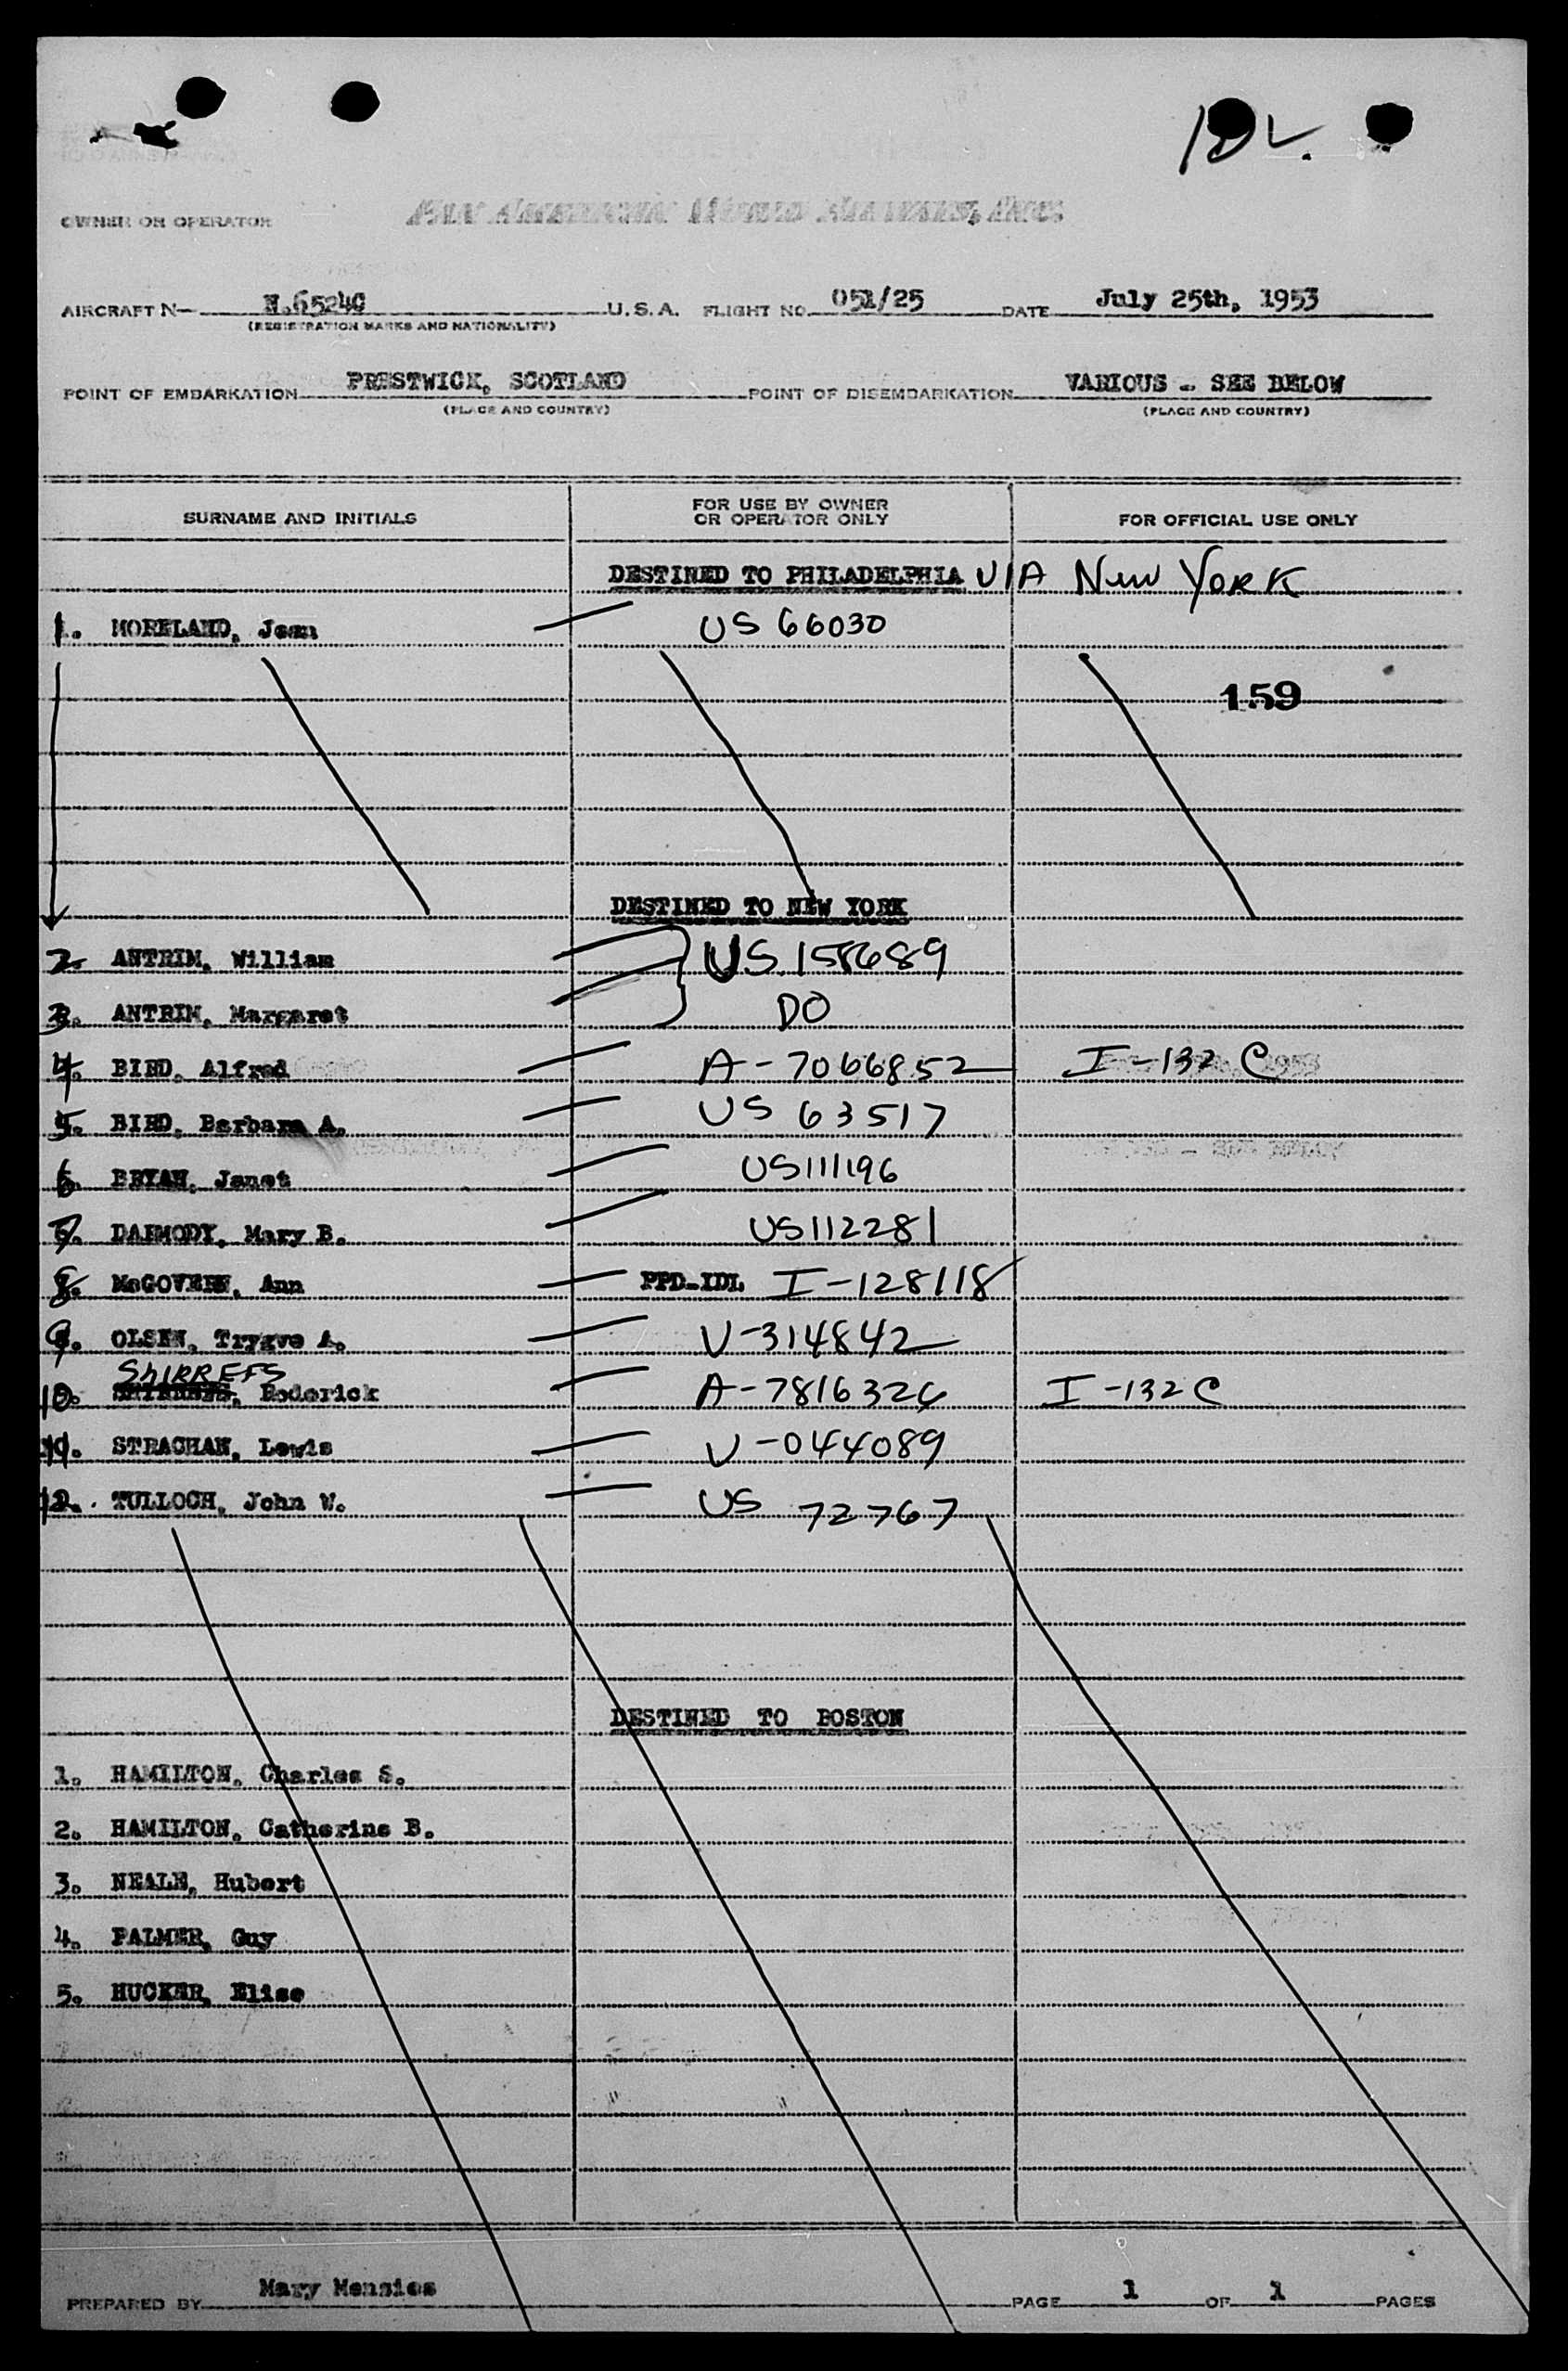 12 L.
OWNER OR OPERATOR PAN AMERICAN WORLD AIRWAYS, INC.
AIRCRAFT N— N.6524C U.S.A. FLIGHT NO. 051/25 DATE July 25th, 1953
(REGISTRATION MARKS AND NATIONALITY)
POINT OF EMBARKATION PRESTWICK, SCOTLAND POINT OF DISEMBARKATION VARIOUS - SEE BELOW
(PLACE AND COUNTRY) (PLACE AND COUNTRY)
SURNAME AND INITIALS FOR USE BY OWNER OR OPERATOR ONLY FOR OFFICIAL USE ONLY
DESTINED TO PHILADELPHIA VIA New YORK
1. MORELAND, Jean US 66030
159
DESTINED TO NEW YORK
2. ANTRIM, William US 158689
3. ANTRIM, Margaret DO
4. BIRD, Alfred A-7066852 I-132 C
5. BIRD, Barbara A. US 63517
6. BRYAN, Janet US111196
7. DARMODY, Mary B. US112281
8. McGOVERN, Ann PPD-IDL I-128118
9. OLSEN, Trygve A. V-314842
ShIRREFS
10. Roderick A-7816326 I-132C
11. STRACHAN, Lewis V-044089
12. TULLOCH, John W. US 72767
DESTINED TO BOSTON
1. HAMILTON, Charles S.
2. HAMILTON, Catherine B.
3. NEALE, Hubert
4. PALMER, Guy
5. HUCKER, Elise
PREPARED BY Mary Menzies PAGE 1 OF 1 PAGES